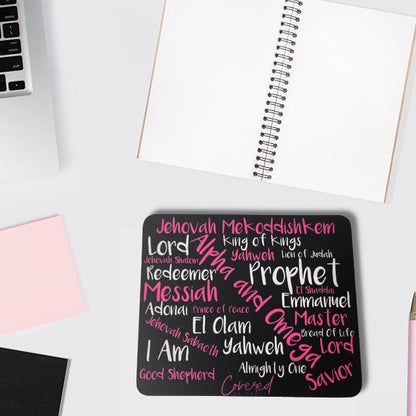 Jehovah Mekoddishkem
Lord
King of Kings
Jehovah Shalom
Yahweh
Lion of Judah
Redeemer
Alpha and Omega
Prophet
Messiah
El Shaddai
Emmanuel
Adonai
Prince of Peace
Master
Jehovah Sabaoth
El Olam
Bread Of Life
I Am
Yahweh
Lord
Almighty One
Good Shepherd
Savior
Covered